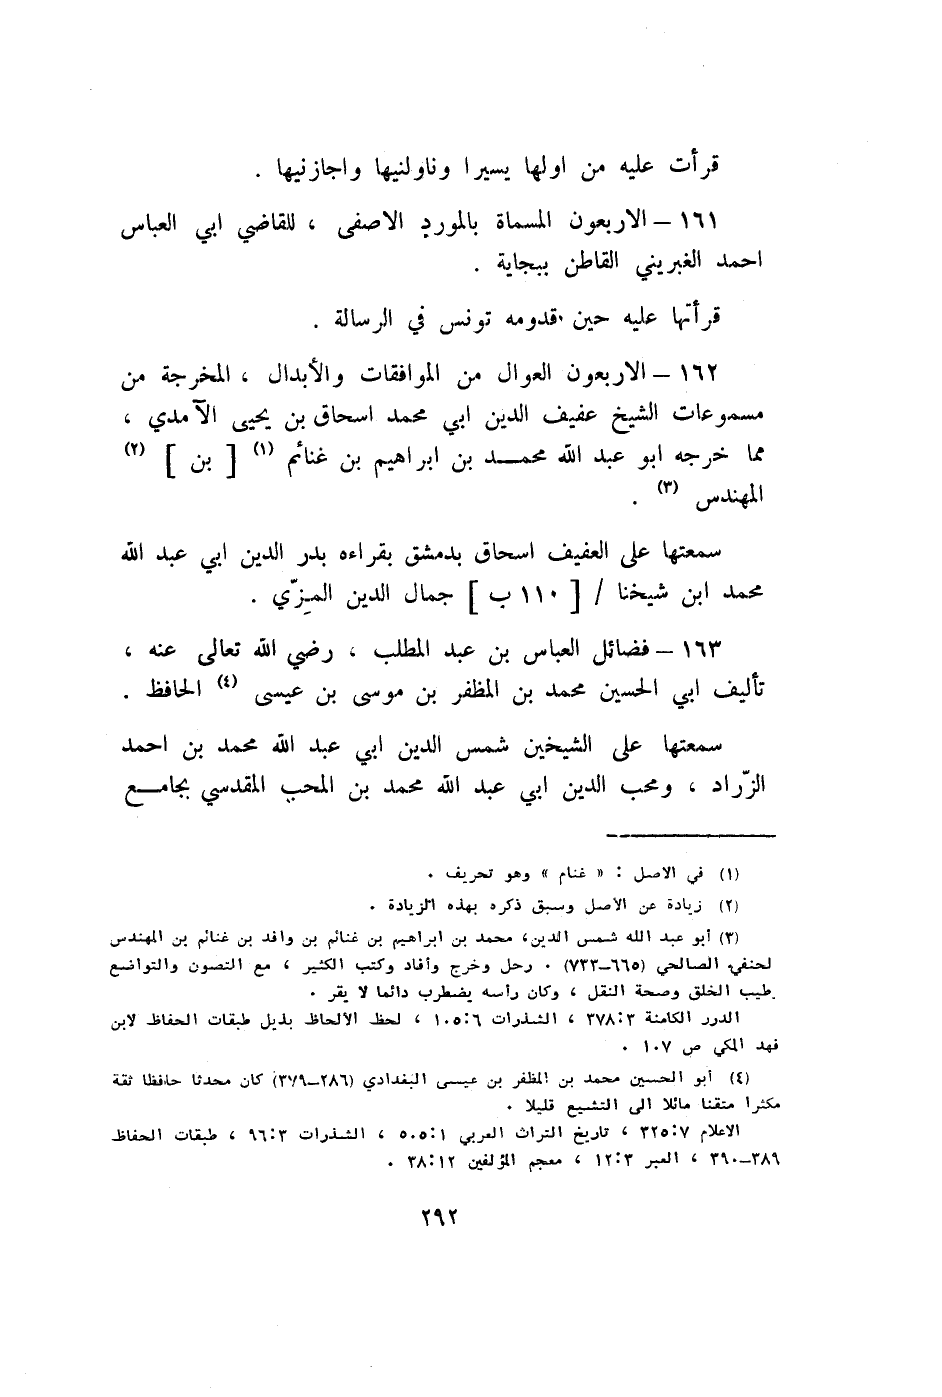 قرأت عليه من اولها يسيرا وناولنيها واجازنيها .
١٦١ – الاربعون المسماة بالمورد الاصفى ، للقاضي ابي العباس
احمد الغبريني القاطن ببجاية .
قرأتها عليه حين قدومه تونس في الرسالة .
١٦٢ – الاربعون العوال من الموافقات والأبدال ، المخرجة من
مسموعات الشيخ عفيف الدين ابي محمد اسحاق بن يحيى الآمدي ،
مما خرجه ابو عبد الله محمـــد بن ابراهيم بن غنائم (١) [ بن ] (٢)
المهندس (٣) .
سمعتها على العفيف اسحاق بدمشق بقراءه بدر الدين ابي عبد الله
محمد ابن شيخنا / [ ١١٠ ب ] جمال الدين المِزّي .
١٦٣ – فضائل العباس بن عبد المطلب ، رضي الله تعالى عنه ،
تأليف ابي الحسين محمد بن المظفر بن موسى بن عيسى (٤) الحافظ .
سمعتها على الشيخين شمس الدين ابي عبد الله محمد بن احمد
الزّراد ، ومحب الدين ابي عبد الله محمد بن المحب المقدسي بجامـــع
(١) في الاصل : « غنام » وهو تحريف .
(٢) زيادة عن الاصل وسبق ذكره بهذه الزيادة .
(٣) أبو عبد الله شمس الدين، محمد بن ابراهيم بن غنائم بن وافد بن غنائم بن المهندس
لحنفي الصالحي (٦٦٥–٧٣٣) . رحل وخرج وأفاد وكتب الكثير ، مع التصون والتواضع
طيب الخلق وصحة النقل ، وكان رأسه يضطرب دائما لا يقر .
الدرر الكامنة ٣٧٨:٣ ، الشذرات ١٠٥:٦ ، لحظ الألحاظ بذيل طبقات الحفاظ لابن
فهد المكي ص ١٠٧ .
(٤) أبو الحسين محمد بن المظفر بن عيسى البغدادي (٢٨٦–٣٧٩) كان محدثا حافظا ثقة
مكثرا متقنا مائلا الى التشيع قليلا .
الاعلام ٣٢٥:٧ ، تاريخ التراث العربي ٥٠٥:١ ، الشذرات ٩٦:٣ ، طبقات الحفاظ
٣٨٩–٣٩٠ ، العبر ١٢:٣ ، معجم المؤلفين ٣٨:١٢ .
٢٩٢